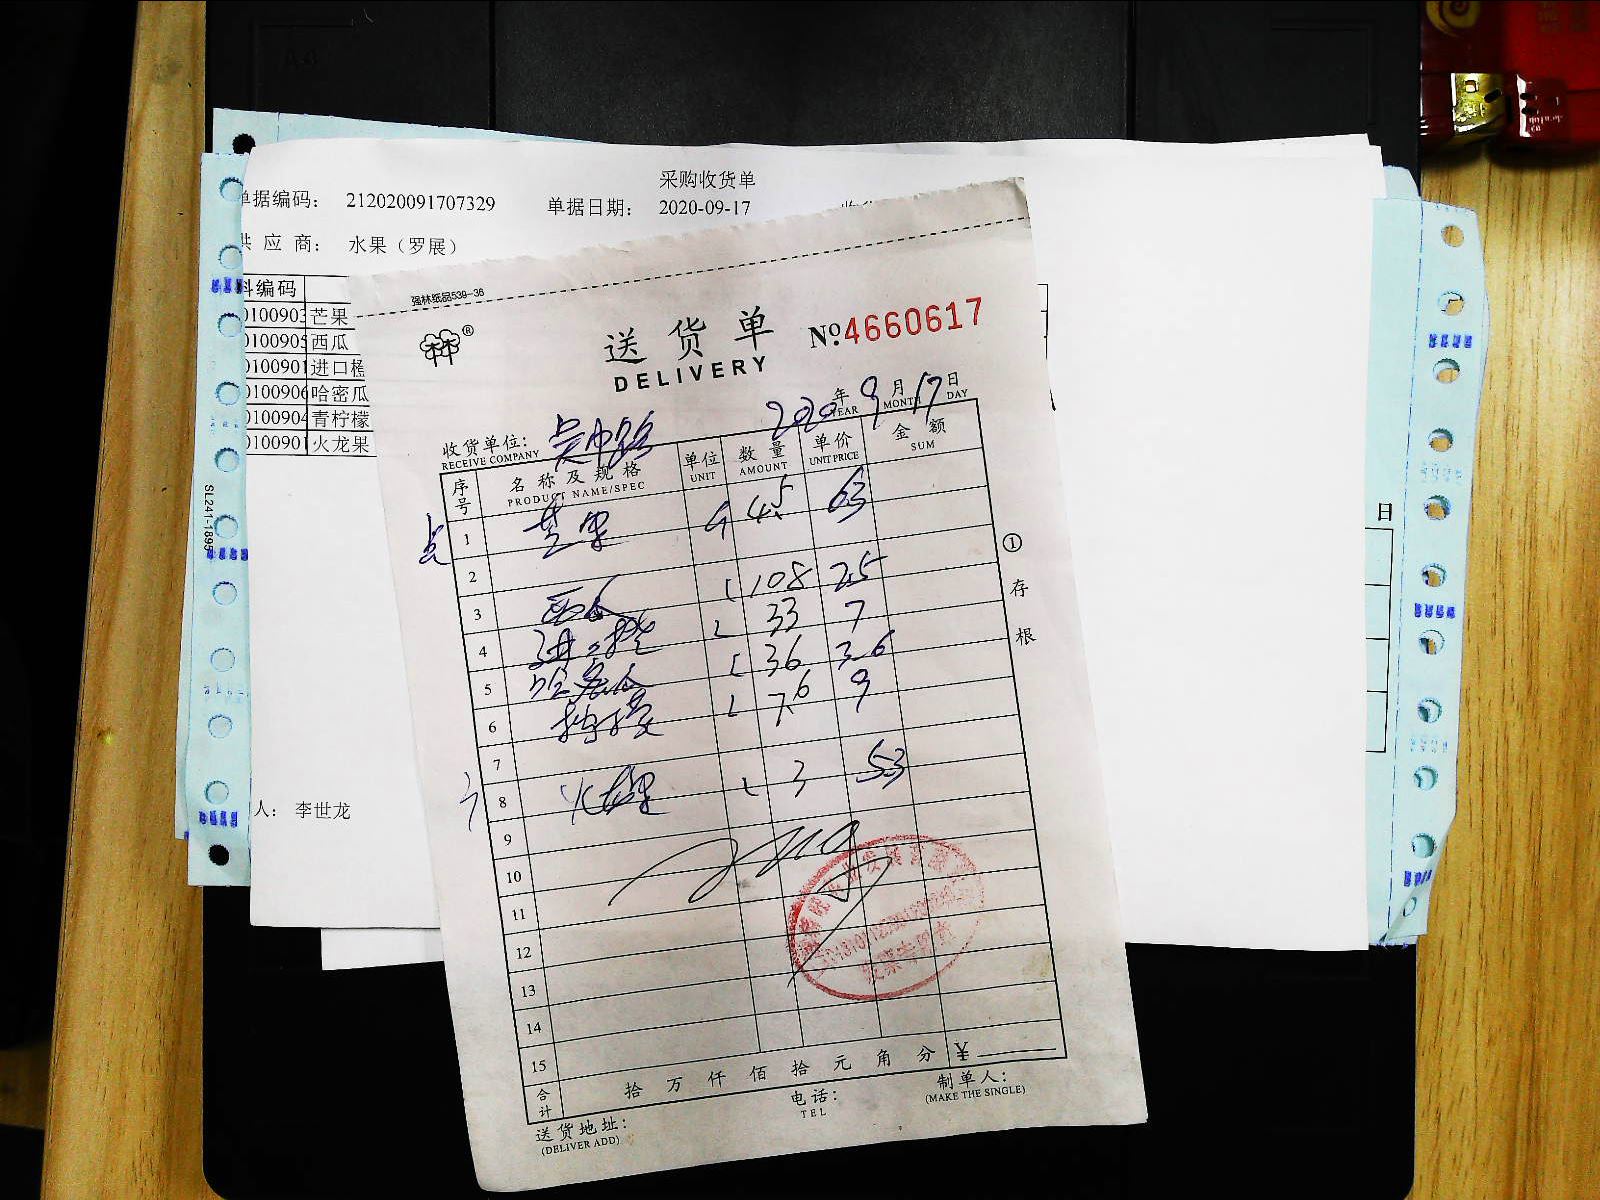 采购收货单
单据编码： 212020091707329 单据日期： 2020-09-17
供 应 商： 水果（罗展）
料编码
0100903 芒果
0100905 西瓜
0100901 进口橙
0100906 哈密瓜
0100904 青柠檬
0100901 火龙果
人： 李世龙
SL241-1895
日
强林纸品539-36
送货单 No.4660617
DELIVERY
2020 年 9 月 17 日
YEAR MONTH DAY
收货单位： 吴中路
RECEIVE COMPANY
序号 名称及规格 单位 数量 单价 金额
PRODUCT NAME/SPEC UNIT AMOUNT UNIT PRICE SUM
1 芒果 4.5 63
2
3 西瓜 108 2.5
4 进口橙 33 7
5 哈密瓜 36 3.6
6 柠檬 7.6 9
7
8 火龙果 3 53
9
10
11
12
13
14
15
合计 拾 万 仟 佰 拾 元 角 分 ¥
送货地址： 电话： 制单人：
(DELIVER ADD) TEL (MAKE THE SINGLE)
① 存根
发票专用章